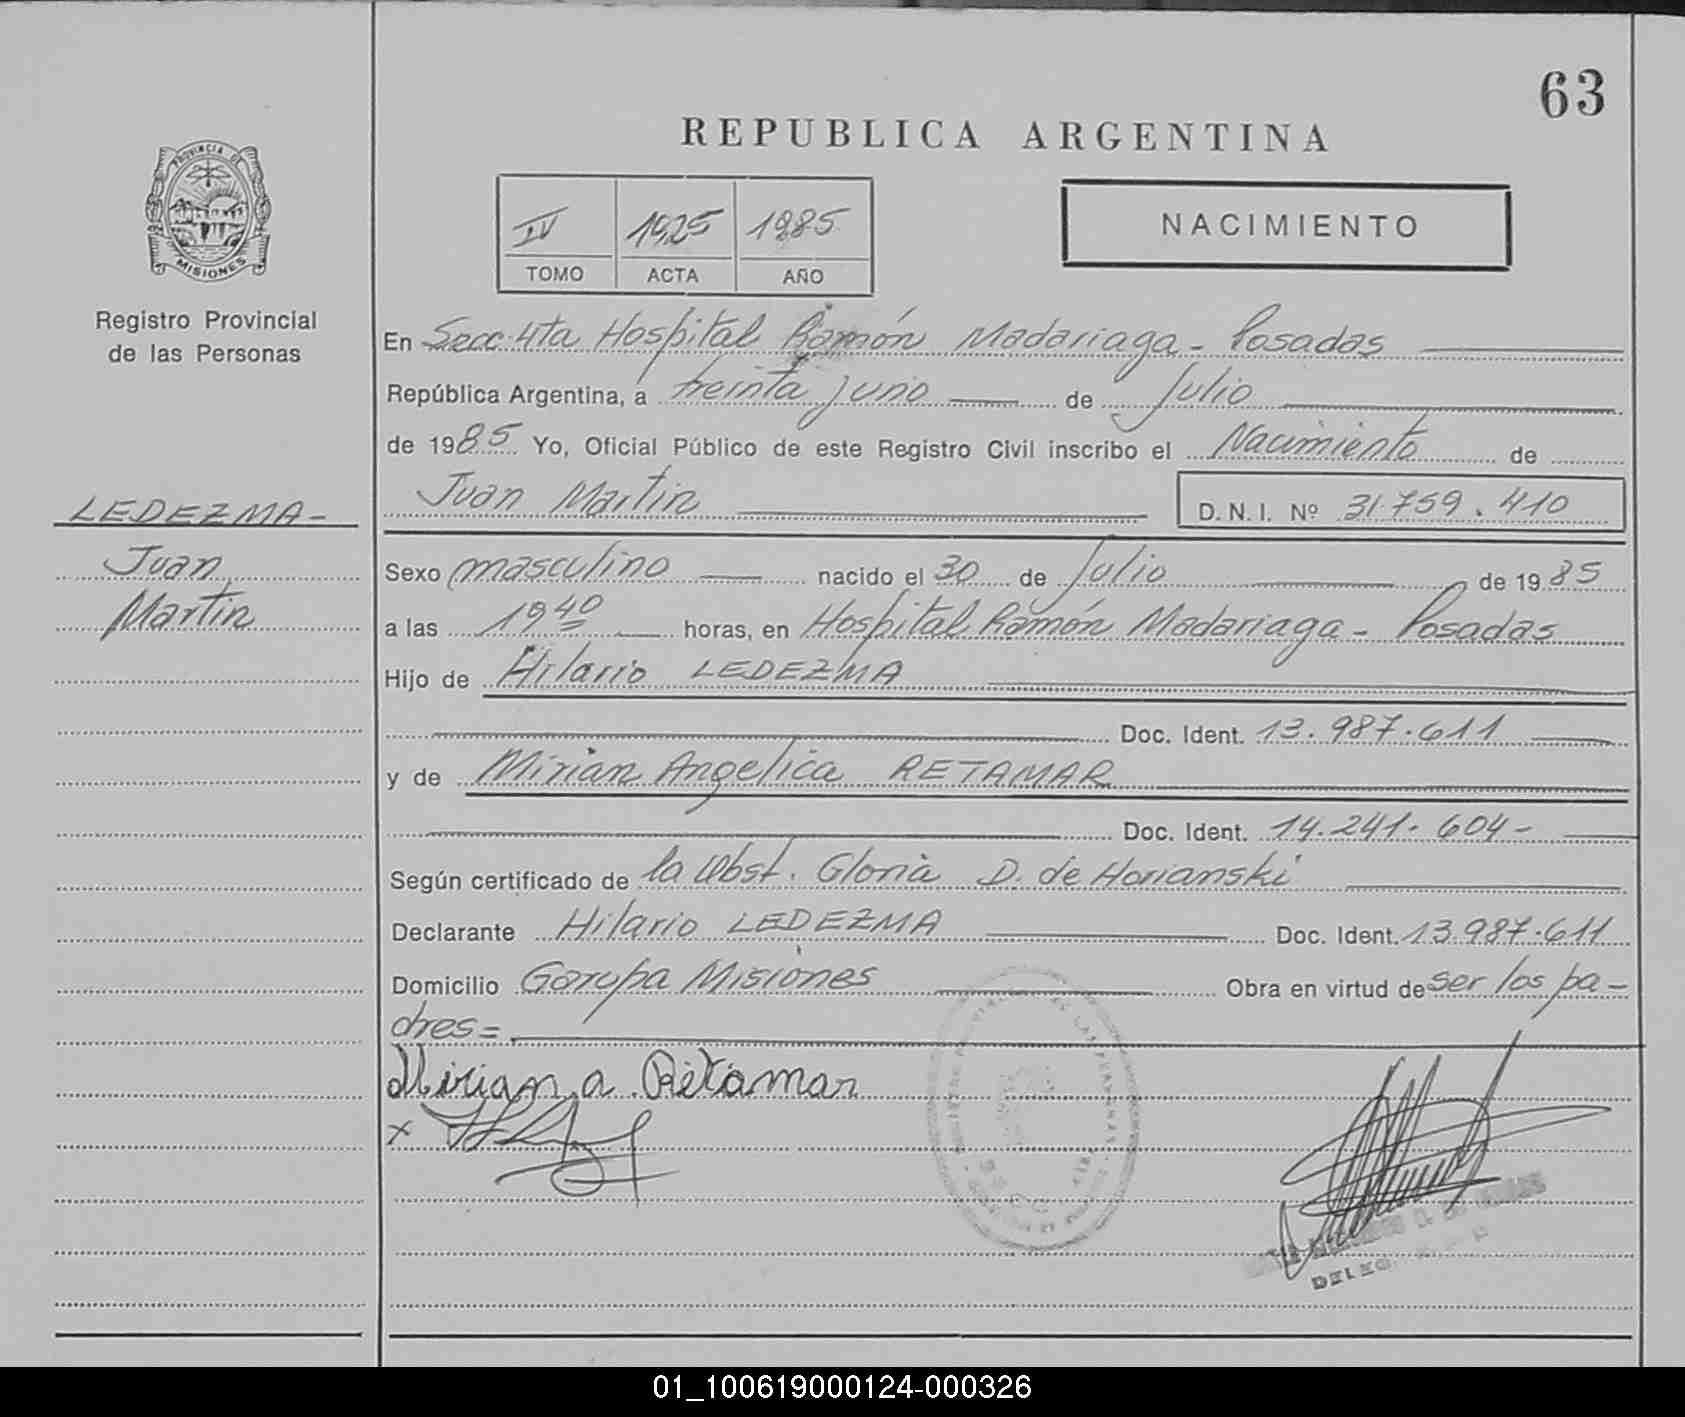 63
REPUBLICA ARGENTINA
PROVINCIA DE
MISIONES
Registro Provincial
de las Personas
IV 1925 1985
TOMO ACTA AÑO
NACIMIENTO
En Secc. 4ta Hospital Ramón Madariaga - Posadas
República Argentina, a treinta y uno de Julio
de 1985 Yo, Oficial Público de este Registro Civil inscribo el Nacimiento de
Juan Martin D.N.I. Nº 31.759.410
LEDEZMA-
Juan
Martin
Sexo masculino nacido el 30 de Julio de 1985
a las 19 40 horas, en Hospital Ramón Madariaga - Posadas
Hijo de Hilario LEDEZMA
Doc. Ident. 13.987.611
y de Mirian Angelica RETAMAR
Doc. Ident. 14.241.604-
Según certificado de la Obst. Gloria D. de Horianski
Declarante Hilario LEDEZMA Doc. Ident. 13.987.611
Domicilio Garupa Misiones Obra en virtud de ser los pa-
dres=
Mirian a. Retamar
x
DELEG.
01_100619000124-000326